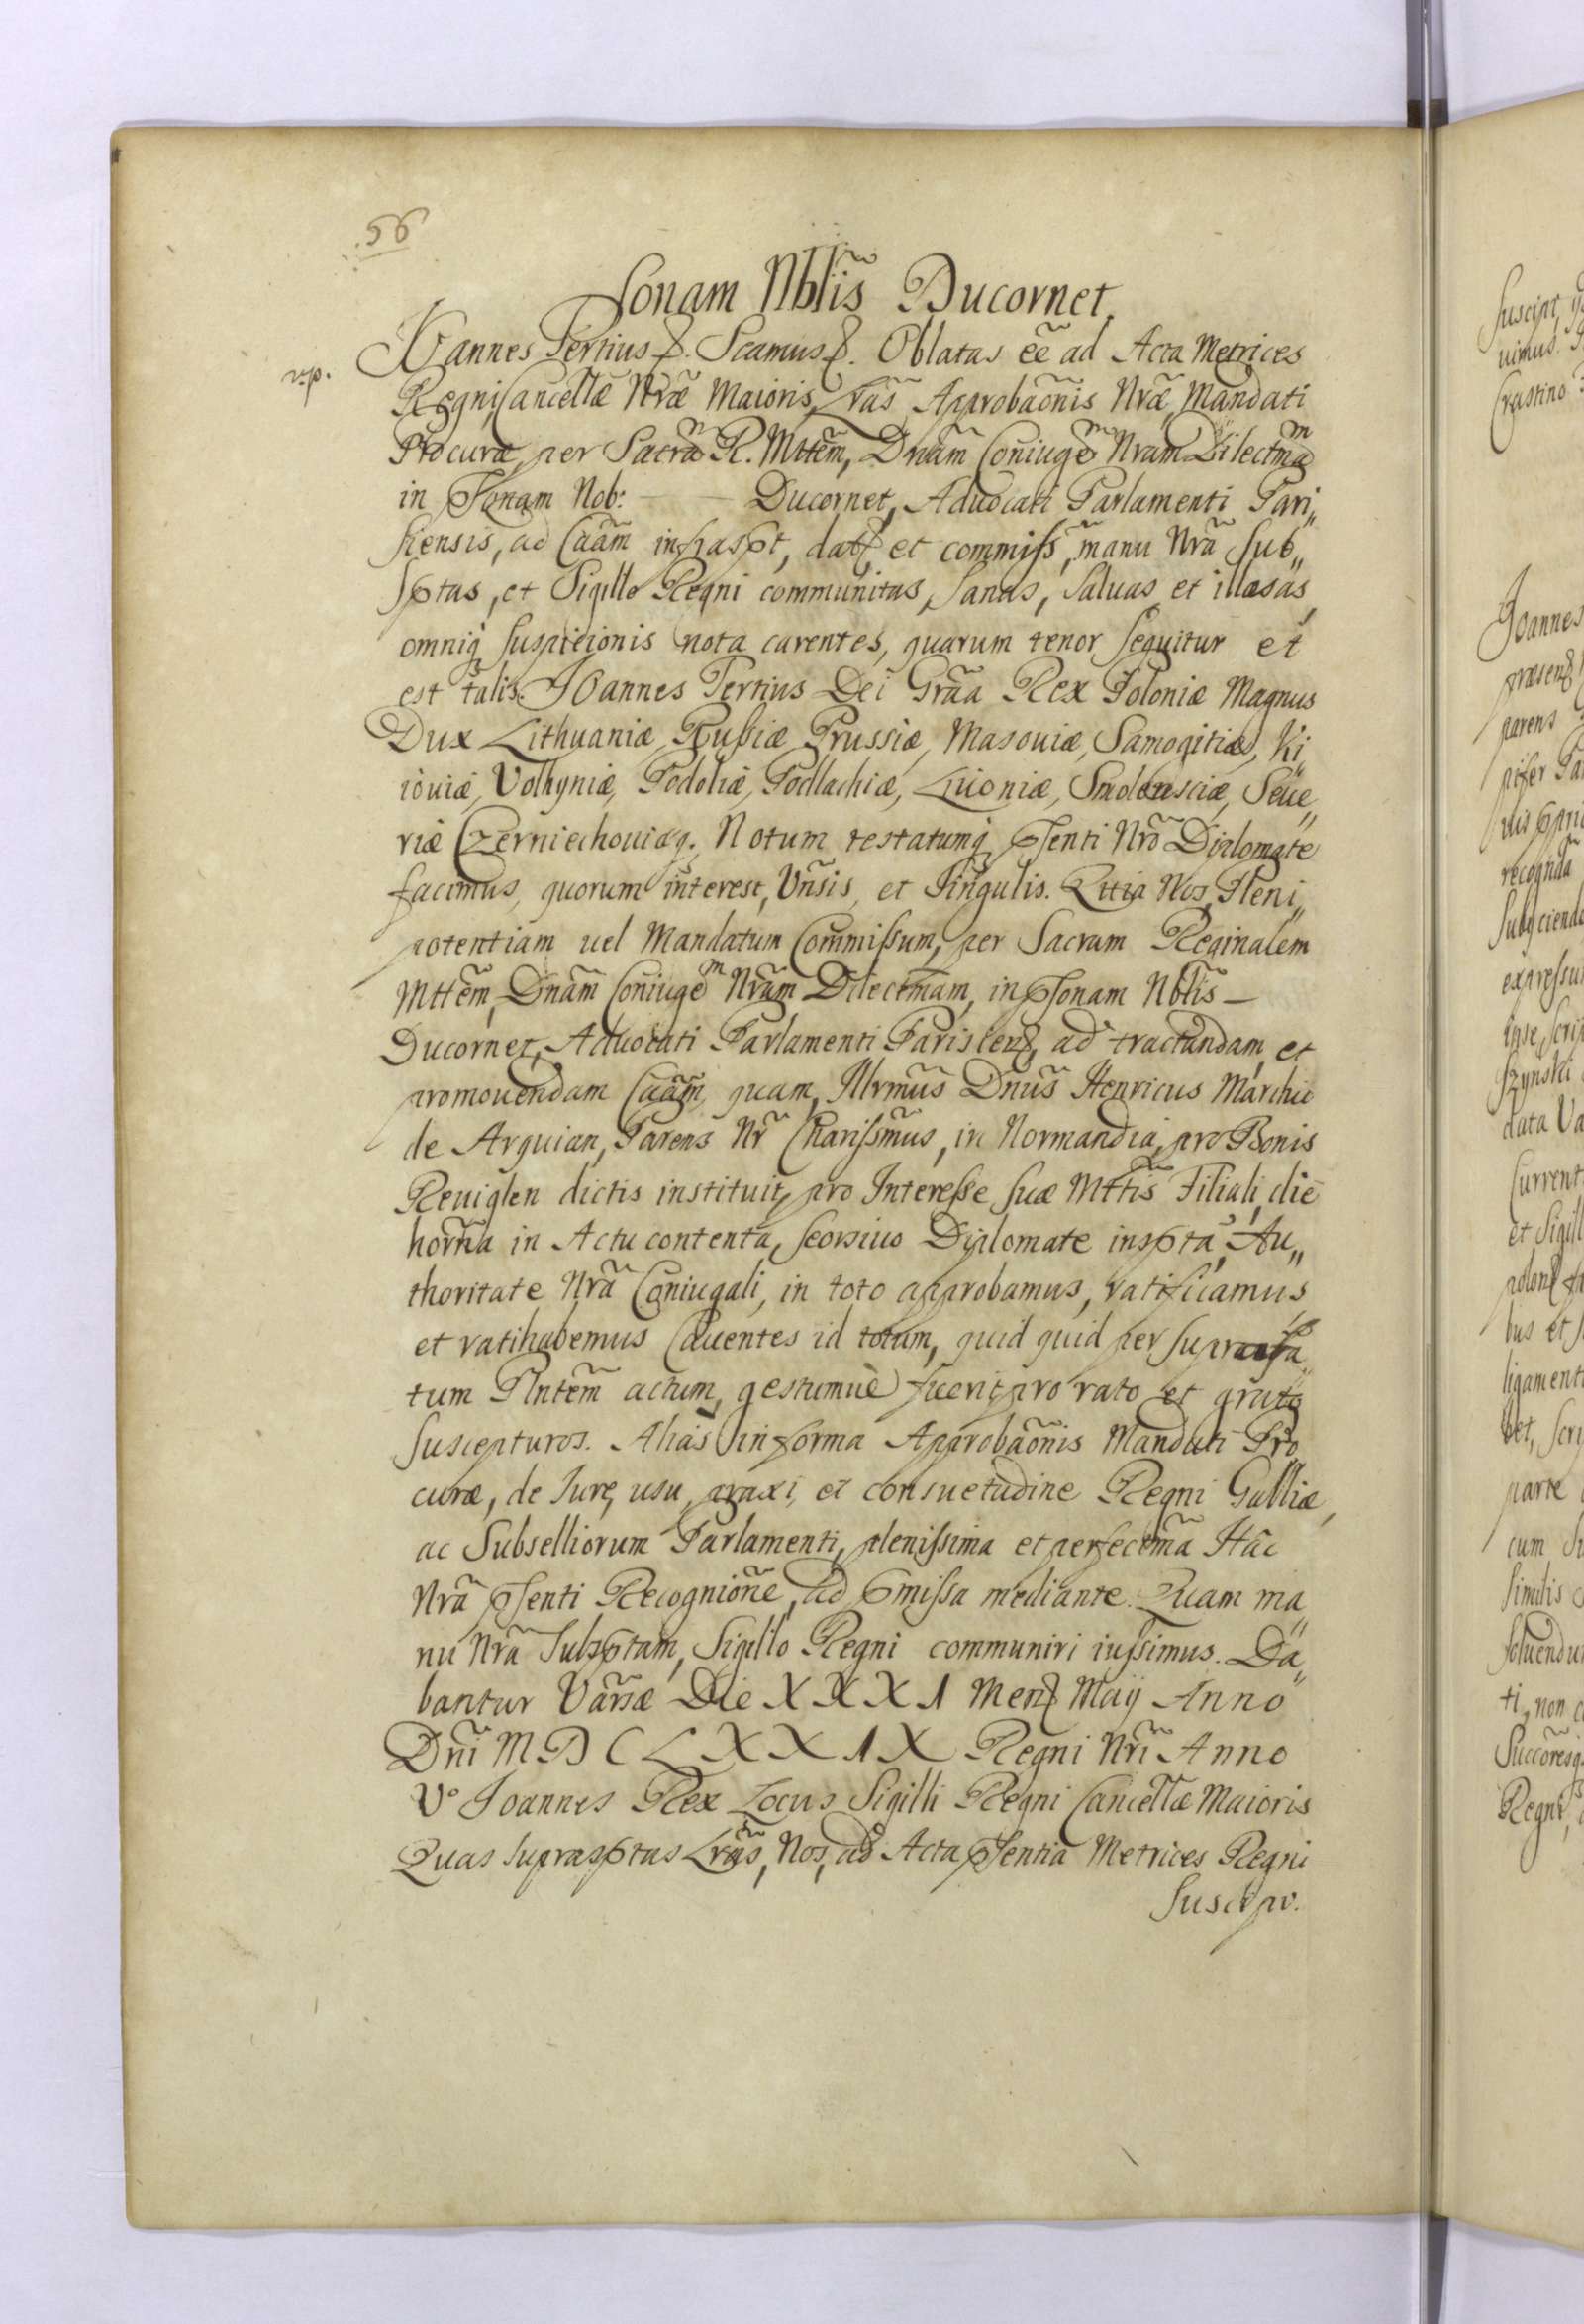 56
sonam Nblis Ducornet.
vp.
Joannes Tertius &. Scamus &. Oblatas eẽ ad Acta Metrices
Regni Cancellæ Nræ Maioris, Lras Approbaõnis Nræ Mandati
Procuræ, per Sacram R. Mttem, Dnam Coniugem Nram Dilectmam
in Psonam Nob: — — Ducornet, Aduocati Parlamenti Pari„
siensis, ad Caãm infraspt, dat, et commiss, manu Nrã sub„
sptas, et Sigillo Regni communitas, sanas, saluas et illæsas,
omniq suspicionis nota carentes, quarum tenor sequitur et
est talis. Joannes Tertius Dei Graã Rex Poloniæ Magnus
Dux Lithuaniæ, Russiæ Prussiæ, Masouiæ, Samogitiæ, Ki„
iouiæ, Volhyniæ, Podoliæ, Podlachiæ, Liuoniæ, Smolensciæ, Seue„
riæ Czerniechouiæq. Notum testatumq psenti Nrõ Diplomate
facimus, quorum interest, Vnsis, et singulis. Ettia Nos, Pleni„
potentiam uel Mandatum Commissum, per Sacram Reginalem
Mttem, Dnam Coniugem Nram Dilectmam, in psonam Nblis —
Ducornet, Aduocati Parlamenti Parisien, ad tractandam, et
promouendam Caãm, quam, Illrmus Dnus Henricus Marchio
de Arquian, Parens Nr Charissmus, in Normandia, pro Bonis
Reuiglen dictis instituit, pro Interesse suæ Mttis Filiali, die
horna in Actu contenta, seorsiuo Diplomate inspta, Au„
thoritate Nrã Coniugali, in toto approbamus, ratificamus,
et ratihabemus Cauentes id totum, quid quid per supra
tum Plntem actum, gestumuè fuerit, pro rato et grato
suscepturos. Alias in forma Approbaõnis Mandati Pro„
curæ, de Iure, usu, praxi, et consuetudine Regni Galliæ,
ac Subselliorum Parlamenti, plenissima et perfectma Hac
Nrã psenti Recognione, ad pmissa mediante. Quam ma„
nu Nrã Subsptam, Sigillo Regni communiri iussimus. Da„
bantur Varsæ Die XXXI Mens Maij Anno
Dni MDCLXXIX Regni Nri Anno
Vº Joannes Rex Locus Sigilli Regni Cancellæ Maioris
Quas suprasptas Lras, Nos, ad Acta psentia Metrices Regni
Suscipi.